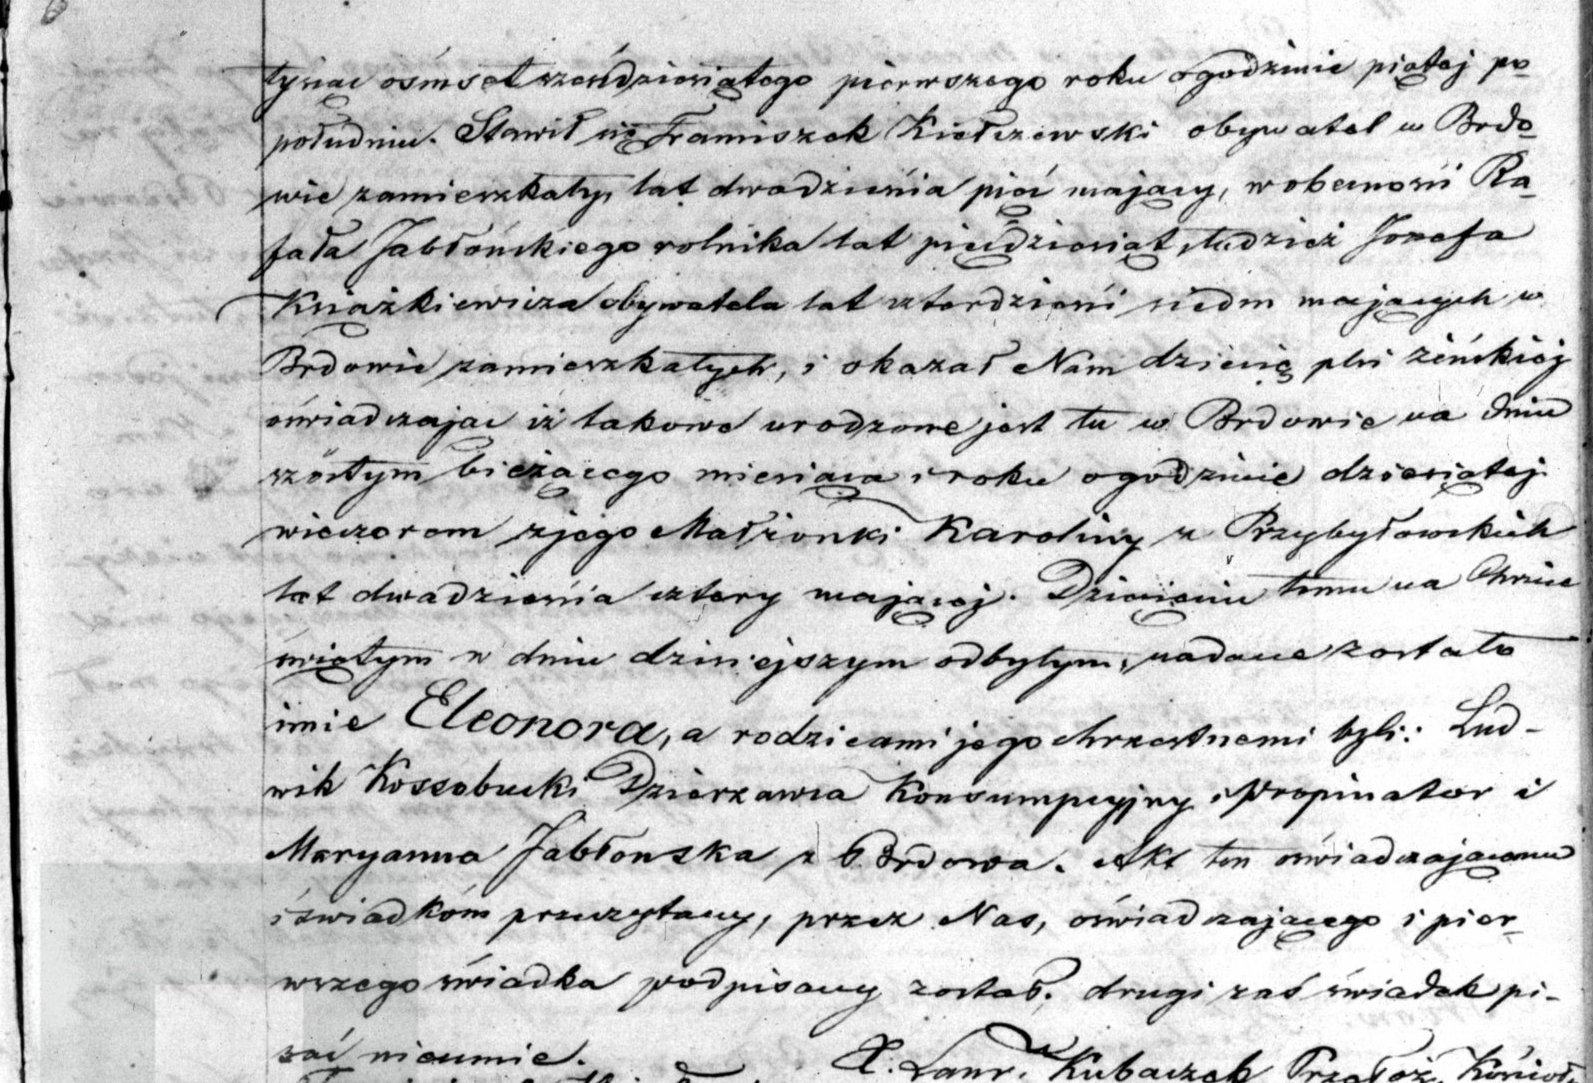 tysiąc ośmset sześćdziesiątego pierwszego roku o godzinie piątej po
południu. Stawił się Franciszek Kiełczewski obywatel w Brdo-
wie zamieszkały, lat dwadzieścia pięć mający, w obecności Ra-
fała Jabłońskiego rolnika lat pięćdziesiąt, tudzież Józefa
Książkiewicza obywatela lat czterdzieści siedm mających w
Brdowie zamieszkałych, i okazał Nam dziecię płci żeńskiej
oświadczając iż takowe urodzone jest tu w Brdowie na dniu
szóstym bieżącego miesiąca i roku o godzinie dziesiątej
wieczorem z jego Małżonki Karoliny z Przybyłowskich
lat dwadzieścia cztery mającej. Dziecięciu temu na Chrzcie
świętym w dniu dzisiejszym odbytym, nadane zostało
imie Eleonora, a rodzicami jego chrzestnemi byli: Lud-
wik Kossobucki Dzierżawca Konsumpcyjny i Propinator i
Maryanna Jabłonska z Brdowa. Akt ten oświadczającemu
i świadkóm przeczytany, przez Nas, oświadczającego i pier-
wszego świadka podpisany został, drugi zaś świadek pi-
sać nieumie.
X. Laur. Kubaczek Przełoż. Kościoł.